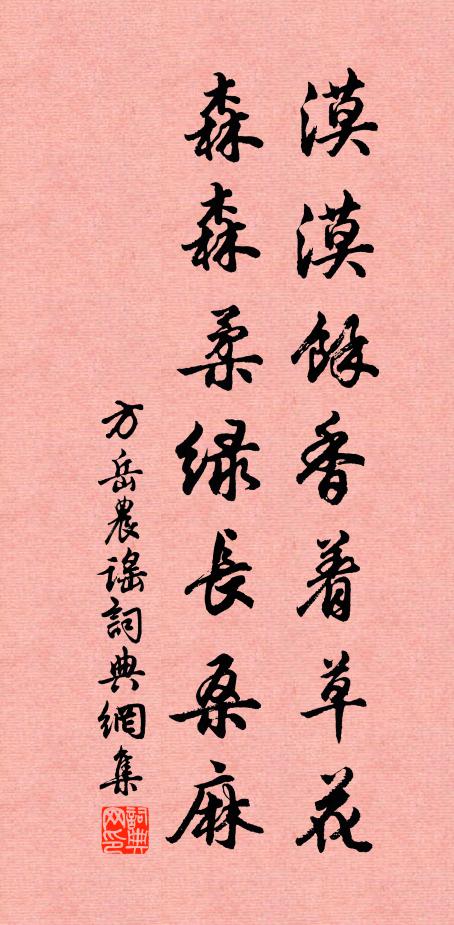 漠漠餘香着草花
森森柔綠長桑麻
方岳農謠詞典網集
詞典网印